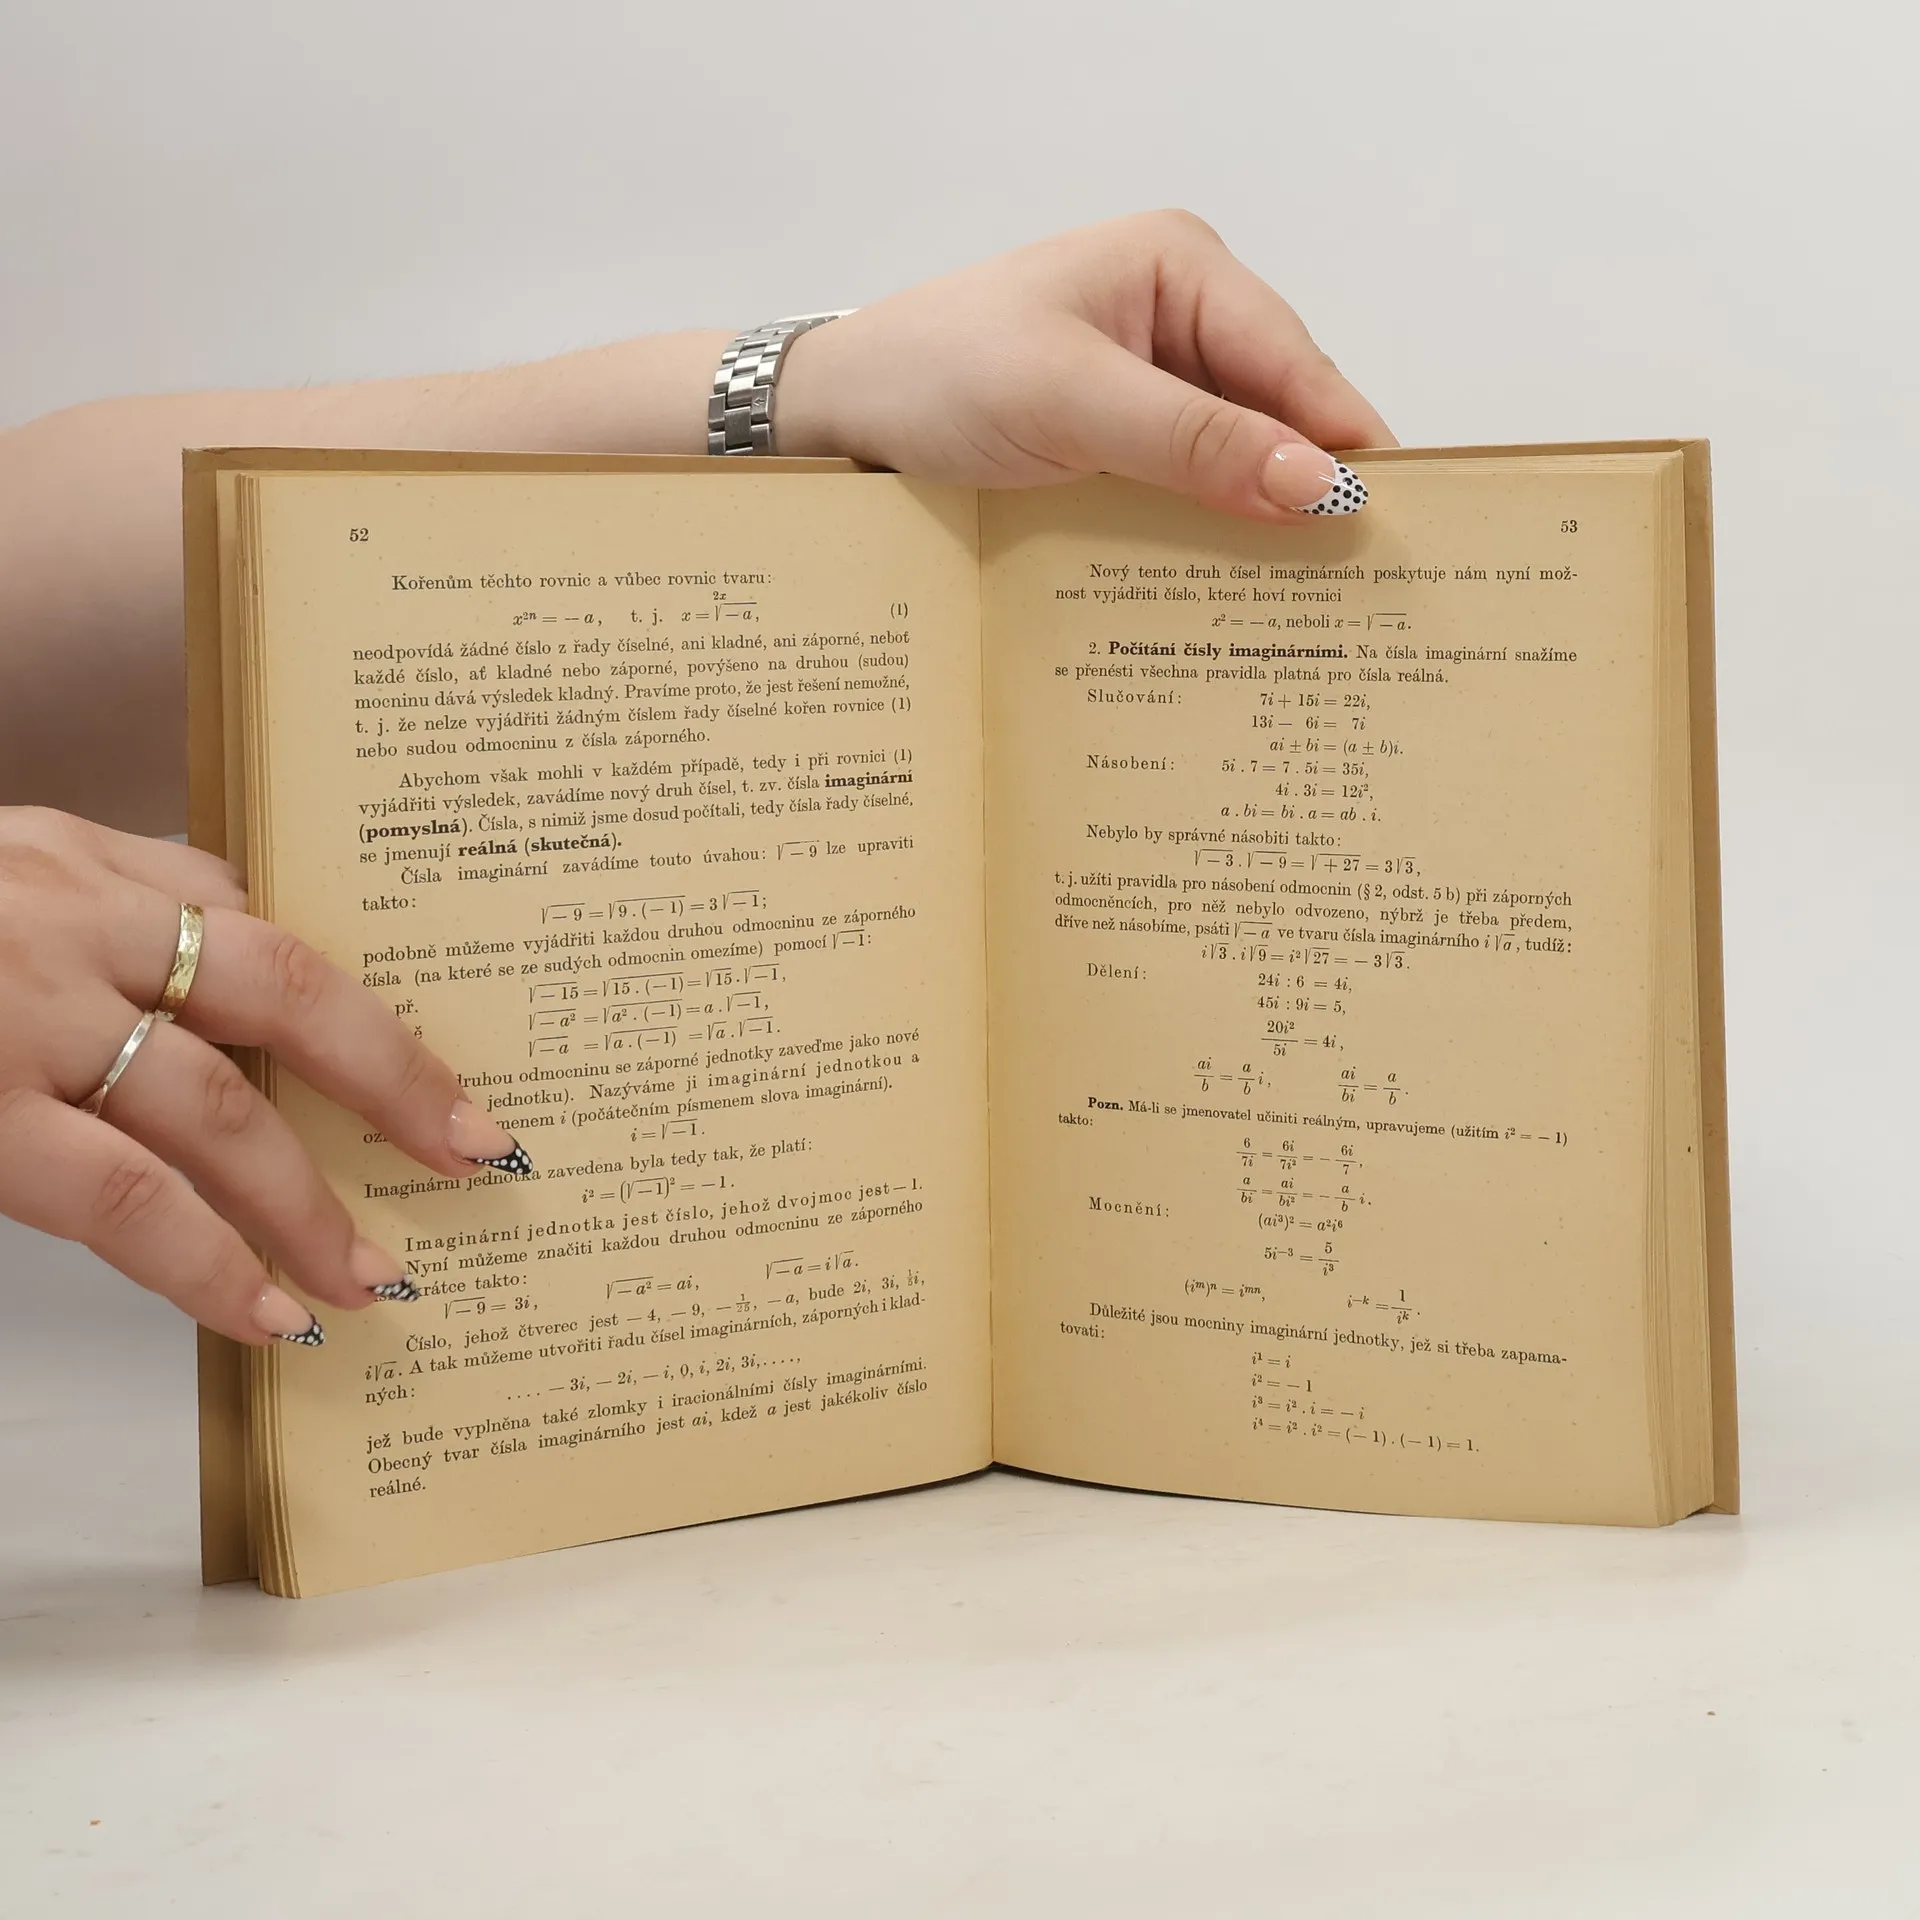 52
Kořenům těchto rovnic a vůbec rovnic tvaru:
x²ⁿ = — a, t. j. x = \sqrt[2x]{— a}, (1)
neodpovídá žádné číslo z řady číselné, ani kladné, ani záporné, neboť
každé číslo, ať kladné nebo záporné, povýšeno na druhou (sudou)
mocninu dává výsledek kladný. Pravíme proto, že jest řešení nemožné,
t. j. že nelze vyjádřiti žádným číslem řady číselné kořen rovnice (1)
nebo sudou odmocninu z čísla záporného.
Abychom však mohli v každém případě, tedy i při rovnici (1)
vyjádřiti výsledek, zavádíme nový druh čísel, t. zv. čísla imaginární
(pomyslná). Čísla, s nimiž jsme dosud počítali, tedy čísla řady číselné,
se jmenují reálná (skutečná).
Čísla imaginární zavádíme touto úvahou: √(— 9) lze upraviti
takto:
√(— 9) = √(9 . (— 1)) = 3 √(—1);
podobně můžeme vyjádřiti každou druhou odmocninu ze záporného
čísla (na které se ze sudých odmocnin omezíme) pomocí √(—1):
př. √(— 15) = √(15 . (—1)) = √15 . √(—1),
ě √(— a²) = √(a² . (—1)) = a . √(—1),
√(—a) = √(a . (—1)) = √a . √(—1).
druhou odmocninu se záporné jednotky zaveďme jako nové
jednotku). Nazýváme ji imaginární jednotkou a
oz menem i (počátečním písmenem slova imaginární).
i = √(—1).
Imaginární jednotka zavedena byla tedy tak, že platí:
i² = (√(—1))² = —1.
Imaginární jednotka jest číslo, jehož dvojmoc jest —1.
Nyní můžeme značiti každou druhou odmocninu ze záporného
krátce takto:
√(— 9) = 3i, √(—a²) = ai, √(—a) = i√a.
Číslo, jehož čtverec jest — 4, — 9, — 1/25, — a, bude 2i, 3i, 1/5i,
i√a. A tak můžeme utvořiti řadu čísel imaginárních, záporných i klad-
ných:
.... — 3i, — 2i, — i, 0, i, 2i, 3i,....,
jež bude vyplněna také zlomky i iracionálními čísly imaginárními.
Obecný tvar čísla imaginárního jest ai, kdež a jest jakékoliv číslo
reálné.
53
Nový tento druh čísel imaginárních poskytuje nám nyní mož-
nost vyjádřiti číslo, které hoví rovnici
x² = — a, neboli x = √(— a).
2. Počítání čísly imaginárními. Na čísla imaginární snažíme
se přenésti všechna pravidla platná pro čísla reálná.
Slučování: 7i + 15i = 22i,
13i — 6i = 7i
ai ± bi = (a ± b)i.
Násobení: 5i . 7 = 7 . 5i = 35i,
4i . 3i = 12i²,
a . bi = bi . a = ab . i.
Nebylo by správné násobiti takto:
√(— 3) . √(— 9) = √(+ 27) = 3√3,
t. j. užíti pravidla pro násobení odmocnin (§ 2, odst. 5 b) při záporných
odmocněncích, pro něž nebylo odvozeno, nýbrž je třeba předem,
dříve než násobíme, psáti √(— a) ve tvaru čísla imaginárního i √a, tudíž:
i√3 . i√9 = i²√27 = — 3√3.
Dělení: 24i : 6 = 4i,
45i : 9i = 5,
20i²/5i = 4i,
ai/b = a/b i, ai/bi = a/b.
Pozn. Má-li se jmenovatel učiniti reálným, upravujeme (užitím i² = — 1)
takto:
6/7i = 6i/7i² = — 6i/7,
a/bi = ai/bi² = — a/b i.
Mocnění: (ai³)² = a²i⁶
5i⁻³ = 5/i³
(iᵐ)ⁿ = iᵐⁿ, i⁻ᵏ = 1/iᵏ.
Důležité jsou mocniny imaginární jednotky, jež si třeba zapama-
tovati:
i¹ = i
i² = — 1
i³ = i² . i = — i
i⁴ = i² . i² = (— 1) . (— 1) = 1.